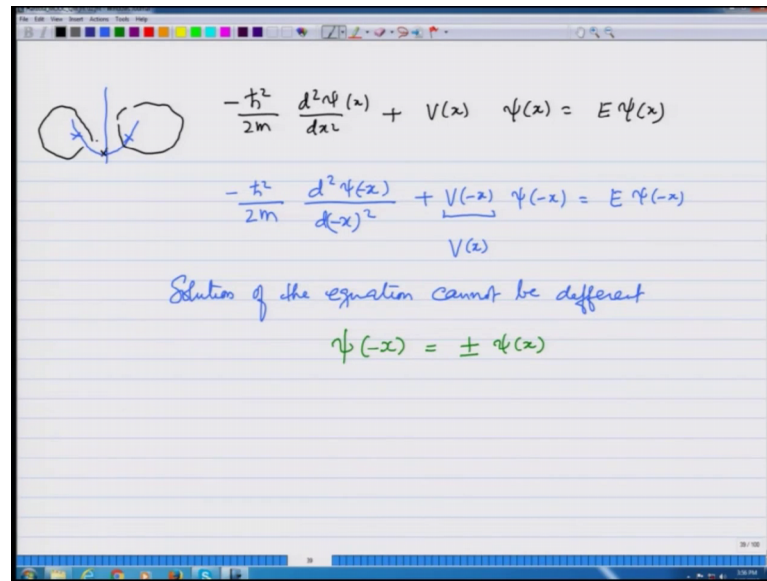 File Edit View Insert Actions Tools Help
-ħ²/2m d²ψ(x)/dx² + V(x) ψ(x) = E ψ(x)
-ħ²/2m d²ψ(-x)/d(-x)² + V(-x) ψ(-x) = E ψ(-x)
V(x)
Solution of the equation cannot be different
ψ(-x) = ± ψ(x)
39 / 100
39
5:56 PM